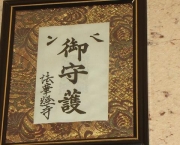 ペン
御守護
法華経寺